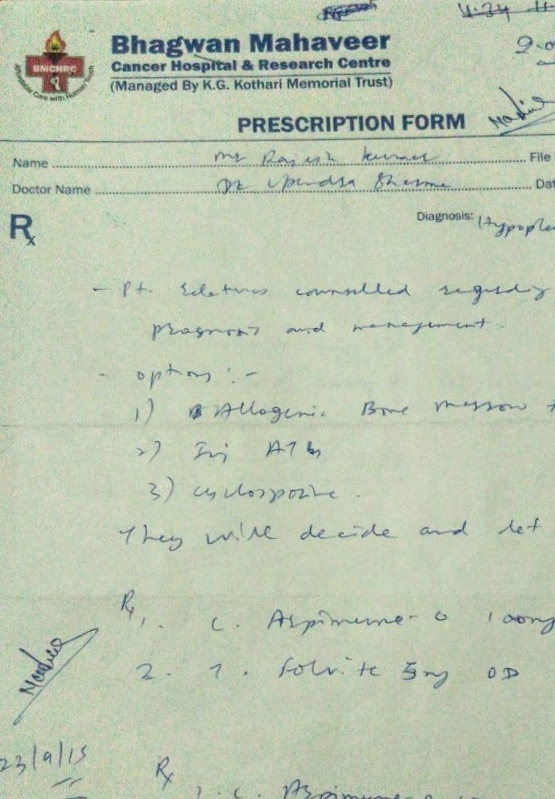 Bhagwan Mahaveer
BMCHRC
Cancer Hospital & Research Centre
(Managed By K.G. Kothari Memorial Trust)
PRESCRIPTION FORM
Name Mr Rajesh Kumar File
Doctor Name Dr Upendra Sharma Dat
Rx
Diagnosis: Hypoplas
- Pt. relatives counselled regarding
prognosis and management.
- options :-
1) Allogenic Bone marrow t
2) Inj ATG
3) cyclosporine.
They will decide and let
Rx
1. C. Arpimune-C 100mg
2. T. Folvite 5mg OD
23/9/15
Rx
1. C. Arpimune-